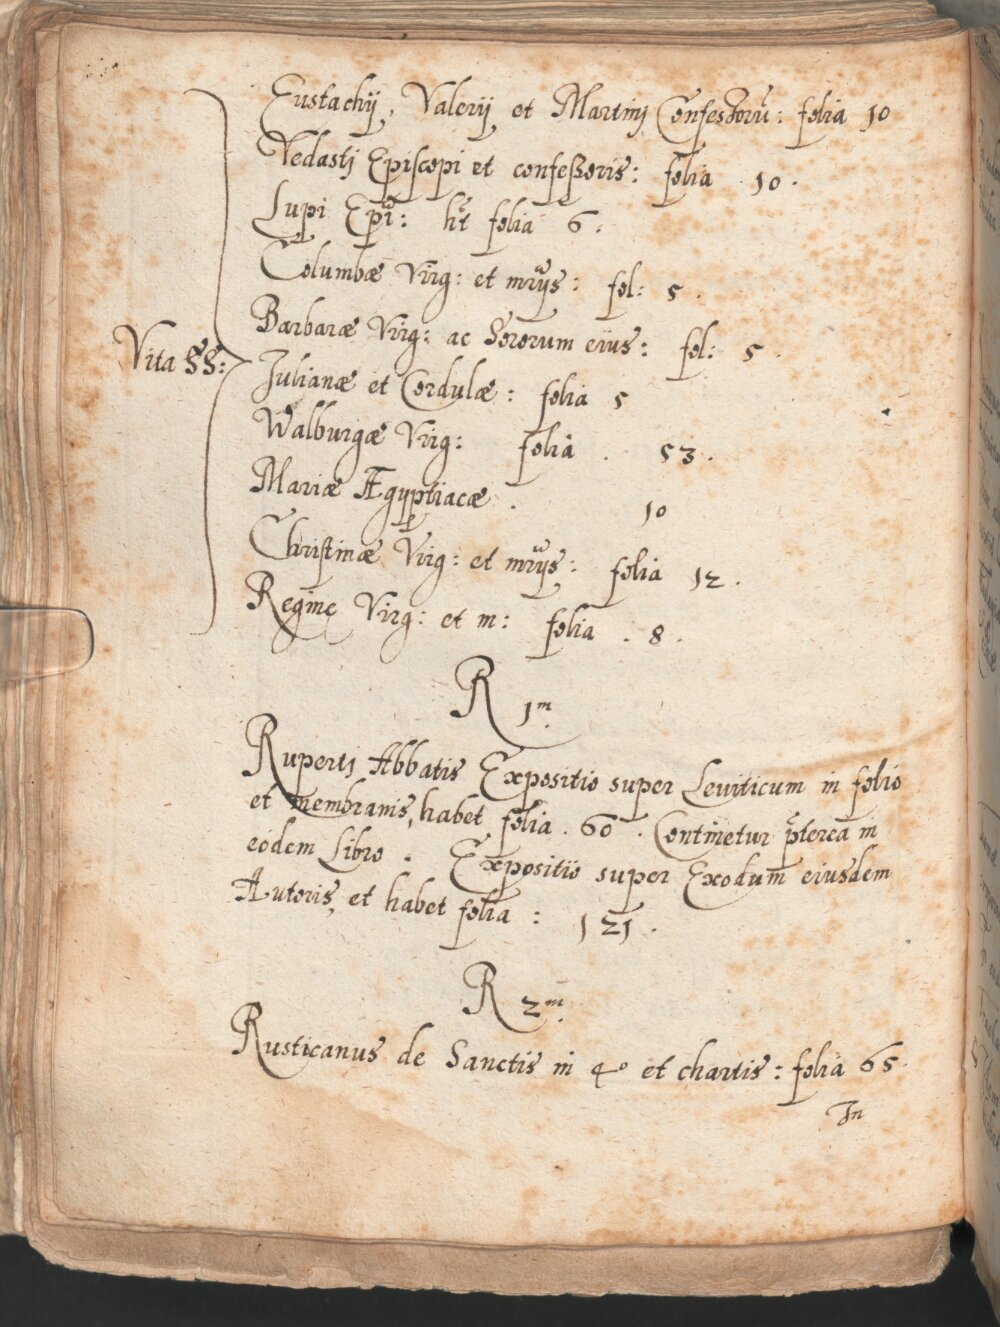 Eustachij, Valerij et Martinj Confessorũ: folia 10
Vedastj Episcopi et confeßoris: folia 10.
Lupi Epĩ: ht̃ folia 6.
Columbæ Virg: et mr̃ys: fol: 5.
Barbaræ Virg: ac Sororum eius: fol: 5.
Vita SS:
Julianæ et Cordulæ: folia 5
Walburgæ Virg: folia. 53.
Mariæ Ægyptiacæ. 10
Christinæ Virg: et mr̃ys: folia 12.
Regine Virg: et m: folia. 8.
R 1m.
Rupertj Abbatis Expositio super Leuiticum in folio
et membranis, habet folia. 60. Continetur p̃terea in
eodem Libro. Expositio super Exodum eiusdem
Autoris, et habet folia: 121.
R 2m.
Rusticanus de Sanctis in 4o et chartis: folia 65.
In